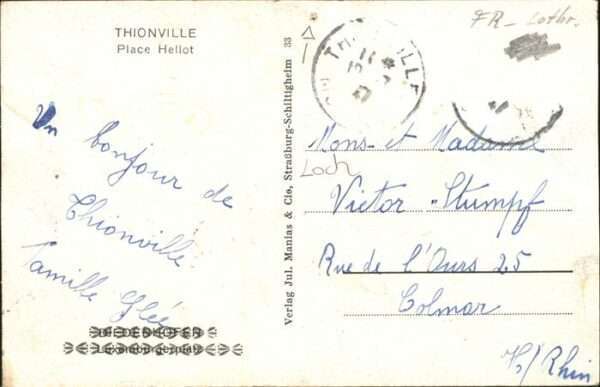 THIONVILLE
Place Hellot
Un bonjour de
Thionville
famille
DIEDENHOFEN
Luxemburgerplatz
Verlag Jul. Manias & Cie, Straßburg-Schiltigheim 33
FR - Lothr.
THIONVILLE
Mons et Madame
Loch
Victor Stumpf
Rue de l'Ours 25
Colmar
H/Rhin